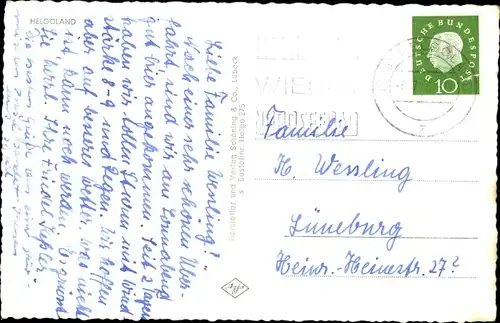 HELGOLAND
Liebe Familie Wessling!"
Nach einer sehr schönen Über-
fahrt, sind wir am Sonnabend
gut hier angekommen. Seit 2 Tagen
haben wir tollen Sturm mit Wind
stärke 8-9 und Regen. Wir hoffen
aber auf besseres Wetter. Was nicht
ist, kann noch werden. Es grüsst
Sie herzl. Ihre
Hersteller und Verlag Schöning & Co., Lübeck
Bestellnr. Helgo 275
Agfa
DEUTSCHE BUNDESPOST
10
WIE
NORDSEEBAD
Familie
H. Wessling
Lüneburg
Heinr.-Heinestr. 27?